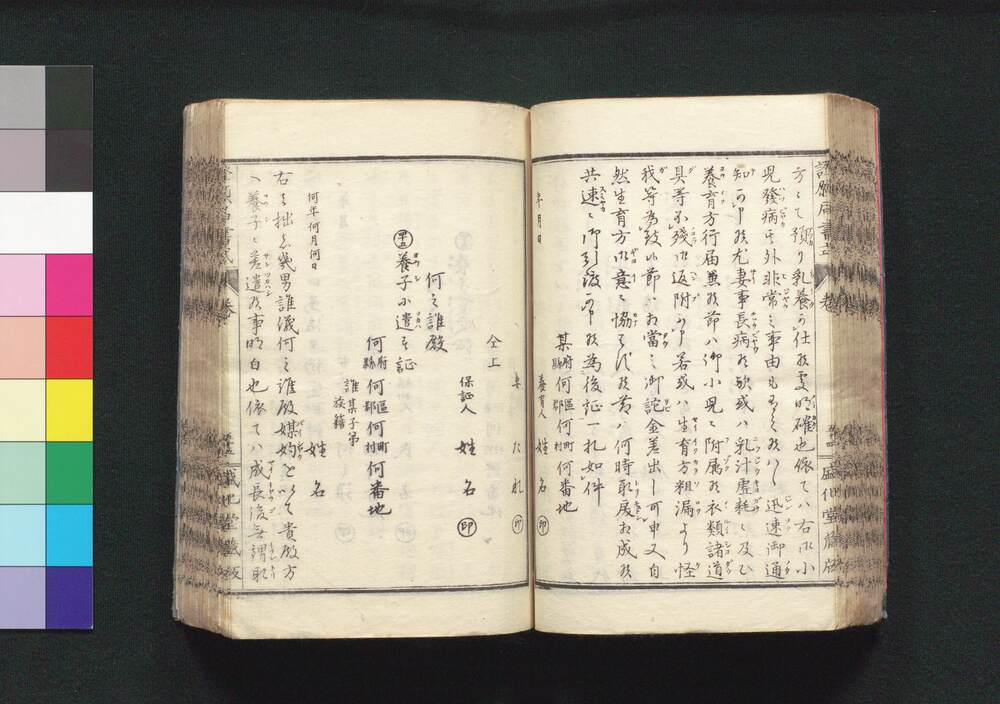 方ニて預り乳養可仕候事明確也依てハ右御小
児發病其外非常之事由も有之候ハヾ迅速御通
知可申候尤妻事長病候歟或ハ乳汁虚耗ニ及ひ
養育方行届兼候節ハ御小児ニ附属候衣類諸道
具等不残御返附可申若或ハ生育方粗漏より怪
我等為致候節ハ相當之御詫金差出し可申又自
然生育方御意ニ協ハず候節ハ何時取戻相成候
共速ニ御引渡可申候為後証一札如件
某府縣何區郡何町村何番地
年月日
養育人 姓名 印
妻 たれ 印
仝上
保証人 姓名 印
何之誰殿
養子小遣す証
何府縣何區郡何町村何番地
誰某子弟
族籍
姓名
何年何月何日
右之拙者幾男誰儀何之誰殿媒妁を以て貴殿方
へ養子ニ差遣候事明白也依てハ成長後無謂取